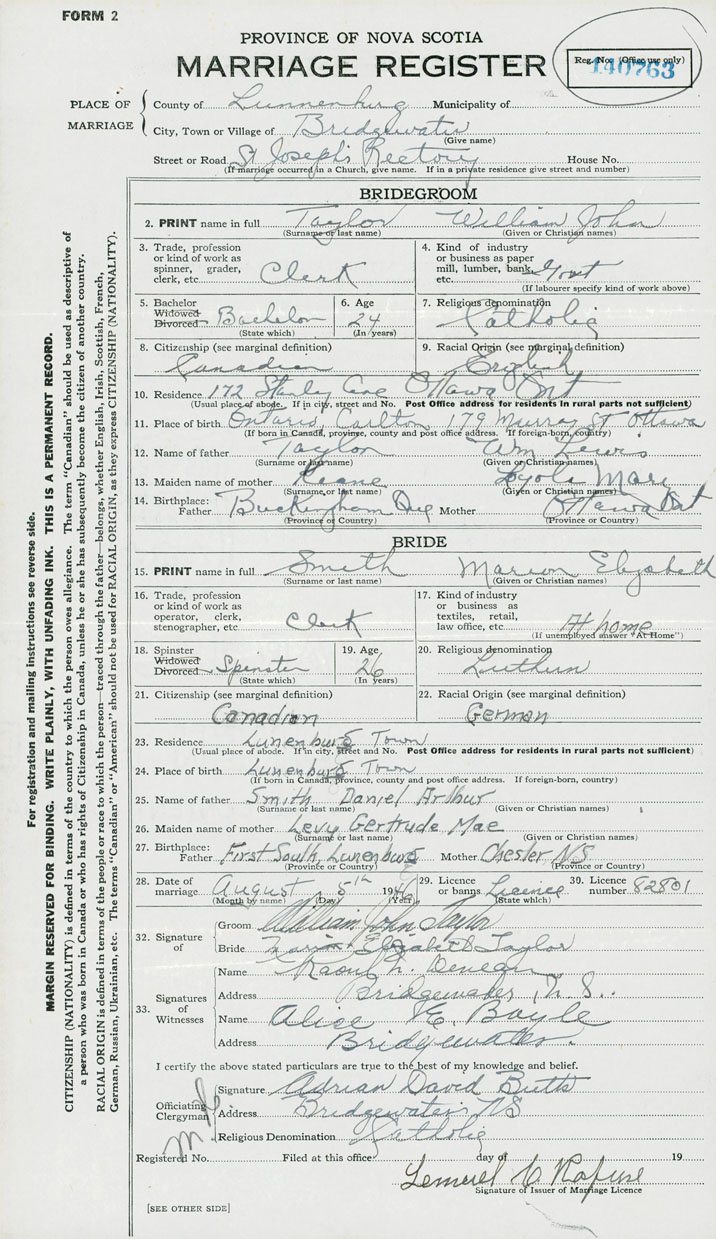 FORM 2
PROVINCE OF NOVA SCOTIA
MARRIAGE REGISTER
Reg. No. (Office use only)
140763
PLACE OF MARRIAGE
County of Lunnenburg Municipality of
City, Town or Village of Bridgewater
(Give name)
Street or Road St Joseph's Rectory House No.
(If marriage occurred in a Church, give name. If in a private residence give street and number)
BRIDEGROOM
2. PRINT name in full Taylor William John
(Surname or last name) (Given or Christian names)
3. Trade, profession or kind of work as spinner, grader, clerk, etc. Clerk
4. Kind of industry or business as paper mill, lumber, bank, etc. Govt
(If labourer specify kind of work above)
5. Bachelor Widowed Divorced Bachelor
(State which)
6. Age 24
(In years)
7. Religious denomination Catholic
8. Citizenship (see marginal definition) Canadian
9. Racial Origin (see marginal definition) English
10. Residence 172 Stanley Ave Ottawa Ont
(Usual place of abode. If in city, street and No. Post Office address for residents in rural parts not sufficient)
11. Place of birth Ontario, Carlton 179 Murray St Ottawa
(If born in Canada, province, county and post office address. If foreign-born, country)
12. Name of father Taylor Wm Lewis
(Surname or last name) (Given or Christian names)
13. Maiden name of mother Keane Mary
(Surname or last name) (Given or Christian names)
14. Birthplace: Father Buckingham Que Mother Ottawa Ont
(Province or Country) (Province or Country)
BRIDE
15. PRINT name in full Smith Marion Elizabeth
(Surname or last name) (Given or Christian names)
16. Trade, profession or kind of work as operator, clerk, stenographer, etc Clerk
17. Kind of industry or business as textiles, retail, law office, etc. At home
(If unemployed answer "At Home")
18. Spinster Widowed Divorced Spinster
(State which)
19. Age 26
(In years)
20. Religious denomination Luthern
21. Citizenship (see marginal definition) Canadian
22. Racial Origin (see marginal definition) German
23. Residence Lunenburg Town
(Usual place of abode. If in city, street and No. Post Office address for residents in rural parts not sufficient)
24. Place of birth Lunenburg Town
(If born in Canada, province, county and post office address. If foreign-born, country)
25. Name of father Smith Daniel Arthur
(Surname or last name) (Given or Christian names)
26. Maiden name of mother Levy Gertrude Mae
(Surname or last name) (Given or Christian names)
27. Birthplace: Father First South, Lunenburg Mother Chester NS
(Province or Country) (Province or Country)
28. Date of marriage August 5th 1946
(Month by name) (Day) (Year)
29. Licence or banns Licence
(State which)
30. Licence number 82801
32. Signature of
Groom William John Taylor
Bride Marion Elizabeth Taylor
33. Signatures of Witnesses
Name Raoul
Address Bridgewater, N.S.
Name Alice E. Boyle
Address Bridgewater.
I certify the above stated particulars are true to the best of my knowledge and belief.
Officiating Clergyman
Signature Adrian David Butts
Address Bridgewater NS
Religious Denomination Catholic
Registered No. Filed at this office day of 19
Lemuel C Rafuse
Signature of Issuer of Marriage Licence
[SEE OTHER SIDE]
For registration and mailing instructions see reverse side.
MARGIN RESERVED FOR BINDING. WRITE PLAINLY, WITH UNFADING INK. THIS IS A PERMANENT RECORD.
CITIZENSHIP (NATIONALITY) is defined in terms of the country to which the person owes allegiance. The term "Canadian" should be used as descriptive of
a person who was born in Canada or who has rights of Citizenship in Canada, unless he or she has subsequently become the citizen of another country.
RACIAL ORIGIN is defined in terms of the people or race to which the person—traced through the father—belongs, whether English, Irish, Scottish, French,
German, Russian, Ukrainian, etc. The terms "Canadian" or "American" should not be used for RACIAL ORIGIN, as they express CITIZENSHIP (NATIONALITY).